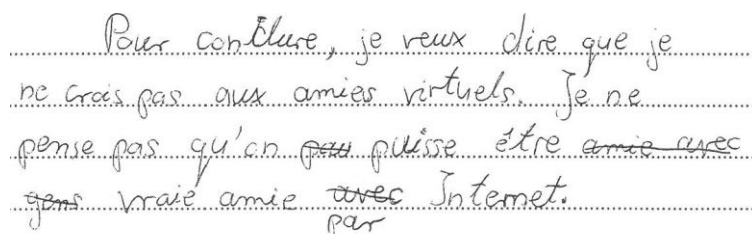 Pour conclure, je veux dire que je
ne crois pas aux amies virtuels. Je ne
pense pas qu'on pau puisse être amie avec
gens vraie amie avec Internet.
par